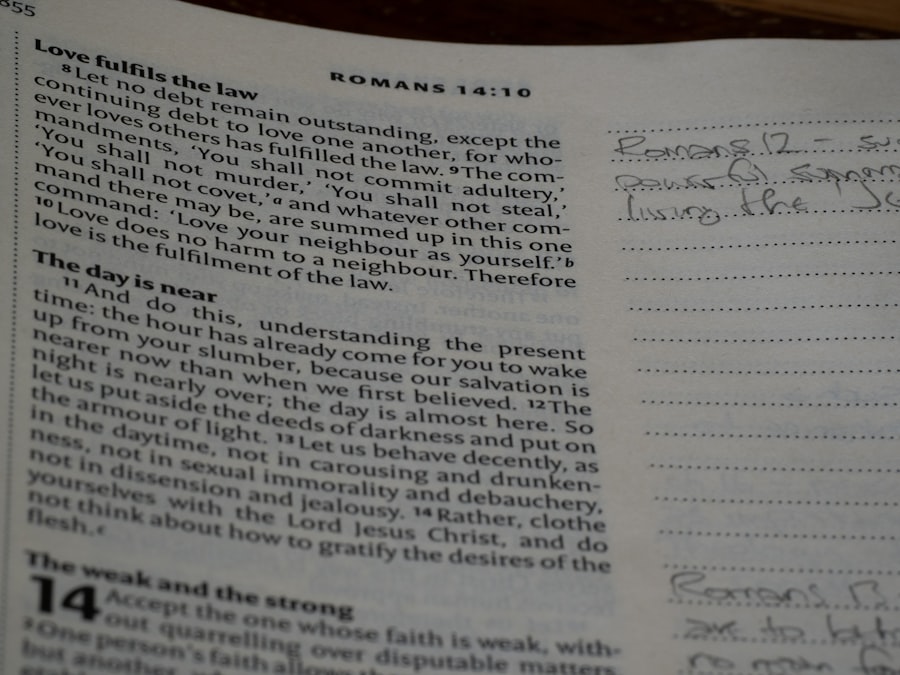 855
ROMANS 14:10
Love fulfils the law
8 Let no debt remain outstanding, except the
continuing debt to love one another, for who-
ever loves others has fulfilled the law. 9 The com-
mandments, ‘You shall not commit adultery,’
‘You shall not murder,’ ‘You shall not steal,’
‘You shall not covet,’a and whatever other com-
mand there may be, are summed up in this one
command: ‘Love your neighbour as yourself.’b
10 Love does no harm to a neighbour. Therefore
love is the fulfilment of the law.
The day is near
11 And do this, understanding the present
time: the hour has already come for you to wake
up from your slumber, because our salvation is
nearer now than when we first believed. 12 The
night is nearly over; the day is almost here. So
let us put aside the deeds of darkness and put on
the armour of light. 13 Let us behave decently, as
in the daytime, not in carousing and drunken-
ness, not in sexual immorality and debauchery,
not in dissension and jealousy. 14 Rather, clothe
yourselves with the Lord Jesus Christ, and do
not think about how to gratify the desires of the
flesh.c
The weak and the strong
14 Accept the one whose faith is weak, with-
out quarrelling over disputable matters.
2 One person's faith allows
but another
Romans 12 –
powerful
living the
Romans
no man